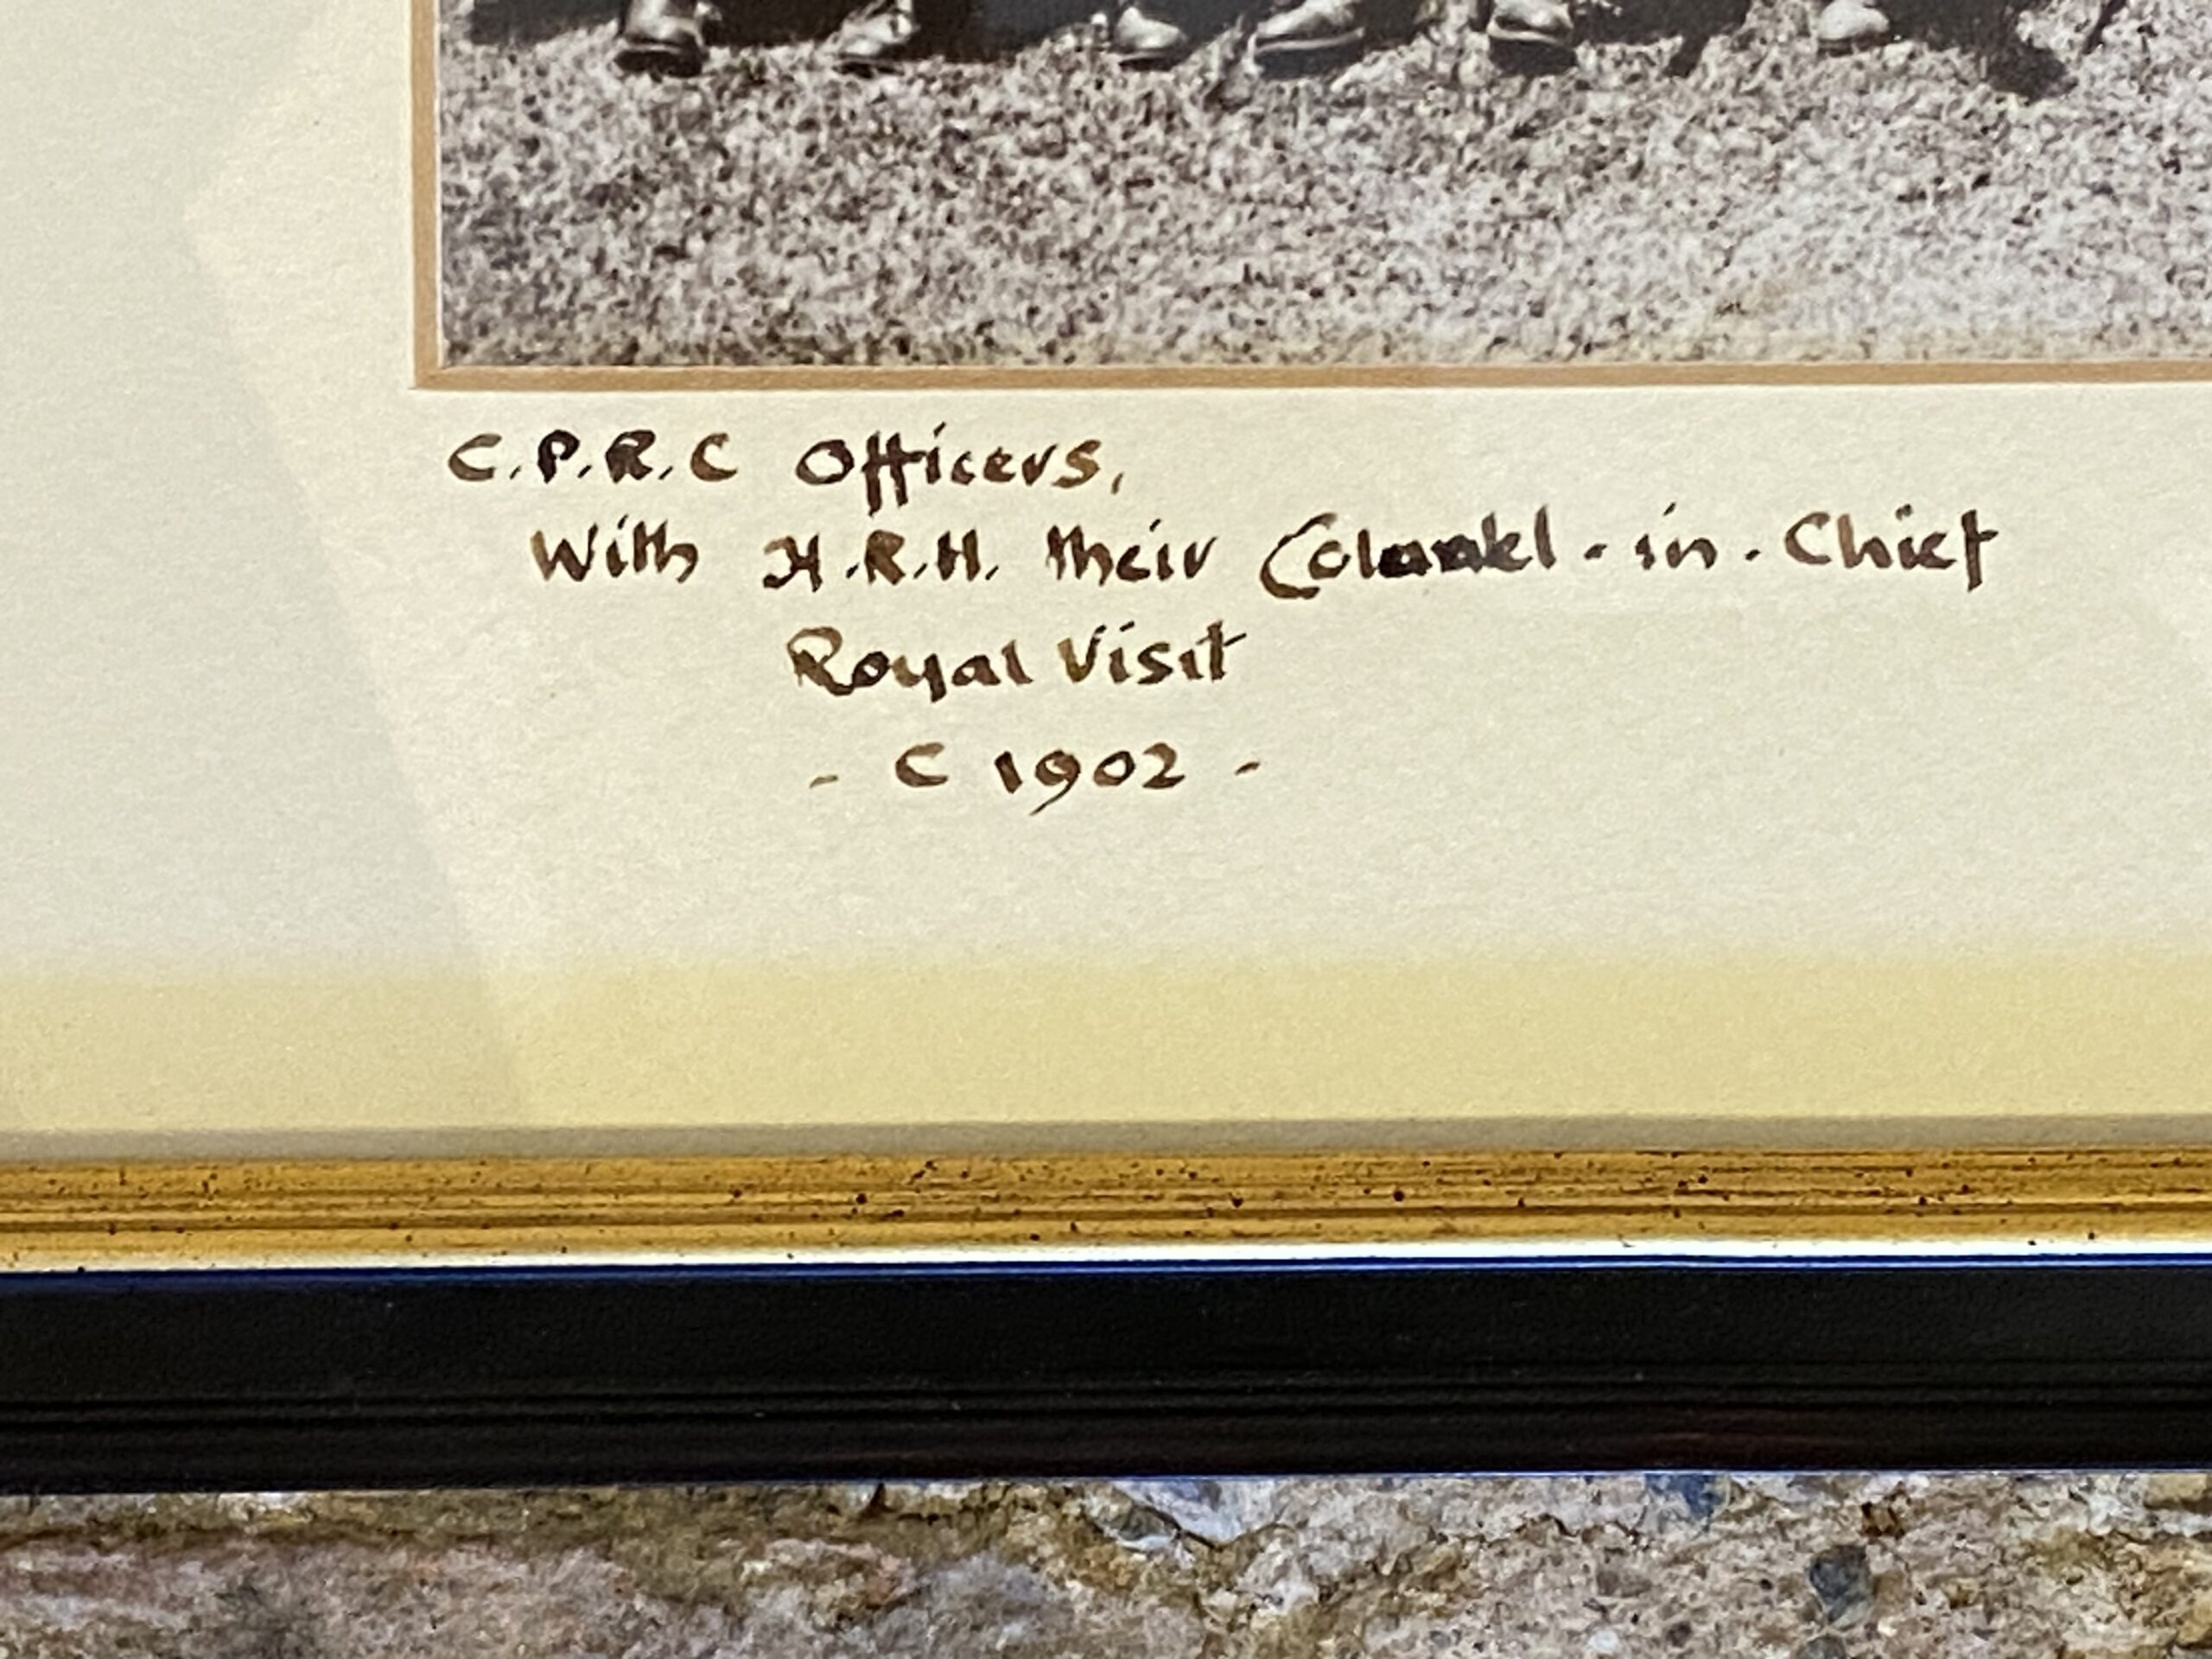 C.P.R.C Officers,
With H.R.H. their Colonel - in - Chief
Royal Visit
- C 1902 -